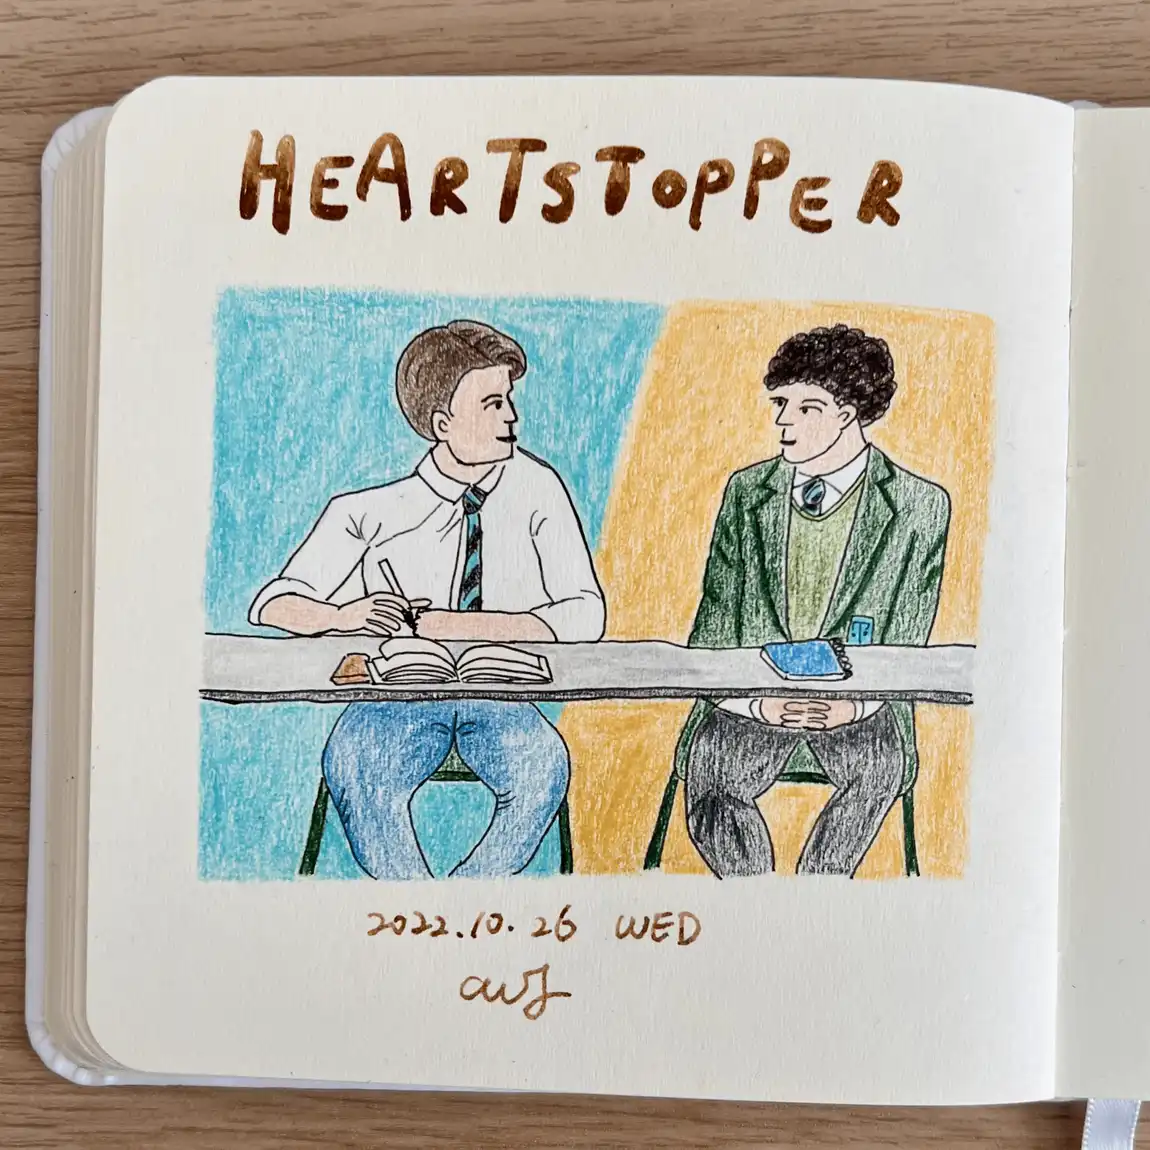 HEARTSTOPPER
2022.10.26 WED